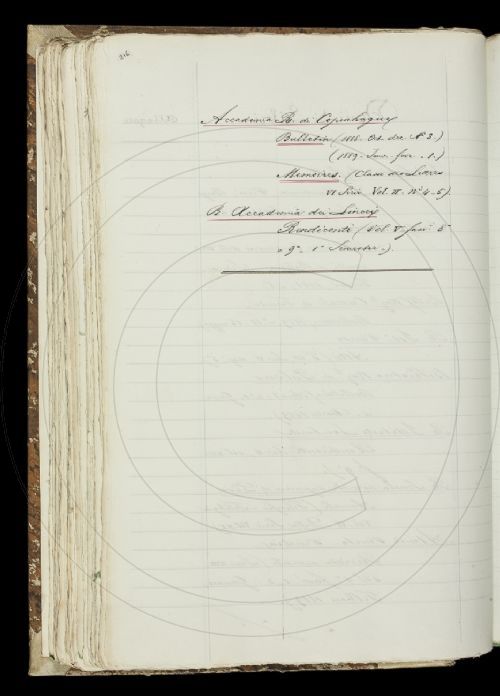 216
Accademia R. di Copenhague
Bulletin (1888. Oct. dec. N° 3.)
(1889. Jan. fev. 1.)
Memoires. (Classe des
VI Série Vol. II. N° 4-5).
R. Accademia dei Lincei
Rendiconti (Vol. V fasc° 8°
e 9°. 1° Semestre.).